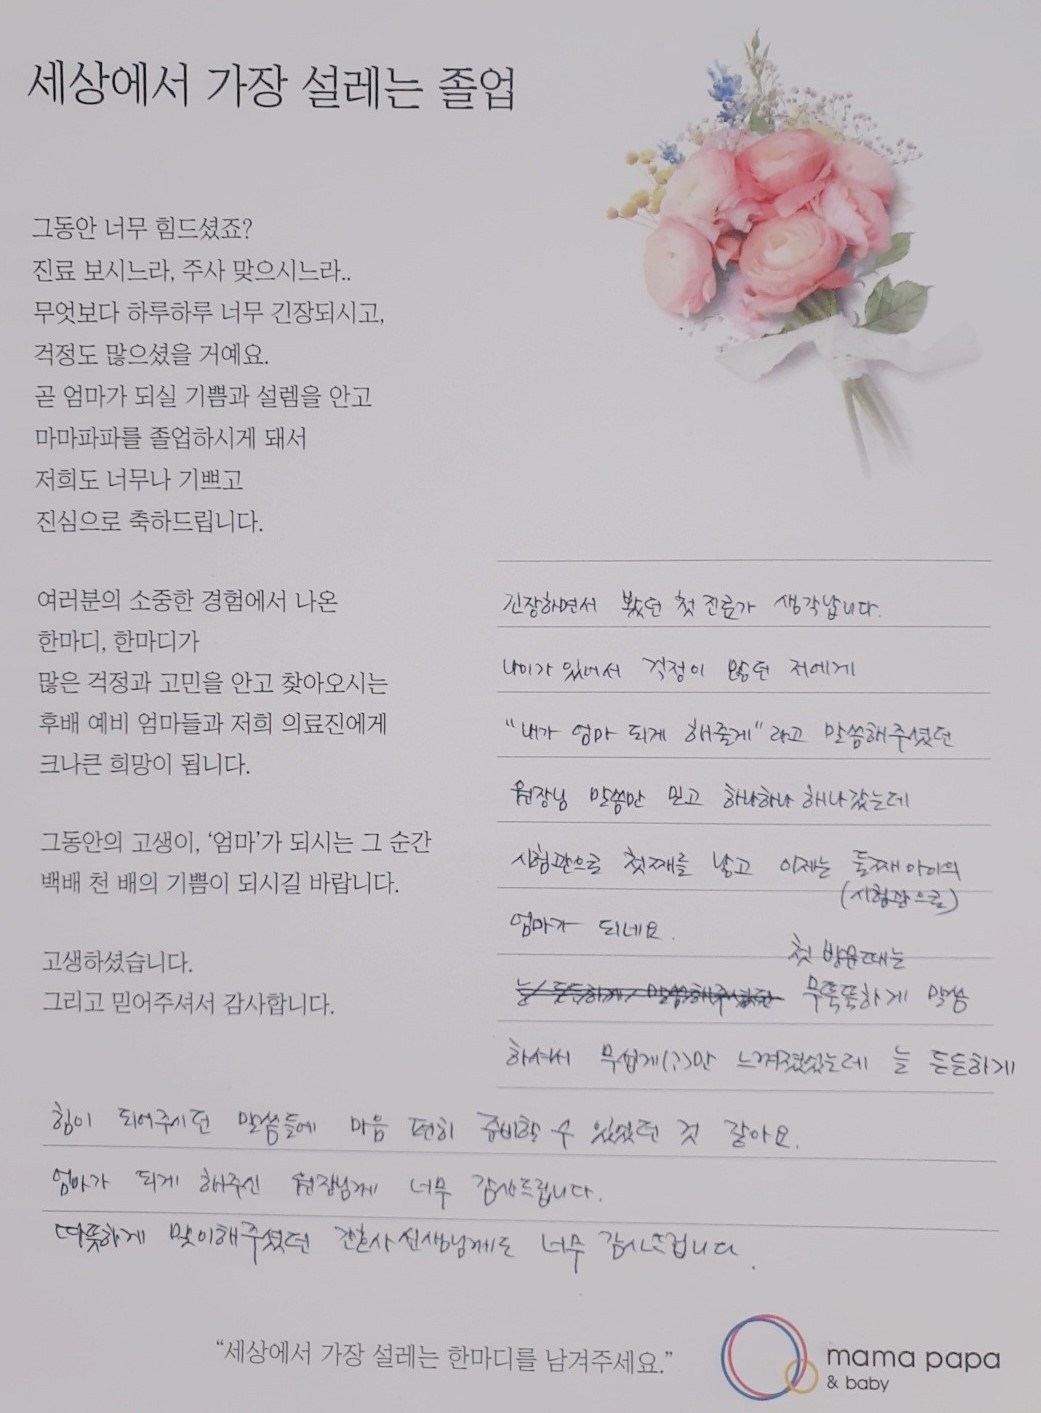 세상에서 가장 설레는 졸업
그동안 너무 힘드셨죠?
진료 보시느라, 주사 맞으시느라..
무엇보다 하루하루 너무 긴장되시고,
걱정도 많으셨을 거예요.
곧 엄마가 되실 기쁨과 설렘을 안고
마마파파를 졸업하시게 돼서
저희도 너무나 기쁘고
진심으로 축하드립니다.
여러분의 소중한 경험에서 나온
한마디, 한마디가
많은 걱정과 고민을 안고 찾아오시는
후배 예비 엄마들과 저희 의료진에게
크나큰 희망이 됩니다.
그동안의 고생이, ‘엄마’가 되시는 그 순간
백배 천 배의 기쁨이 되시길 바랍니다.
고생하셨습니다.
그리고 믿어주셔서 감사합니다.
긴장하면서 봤던 첫 진료가 생각납니다.
나이가 있어서 걱정이 많던 저에게
"내가 엄마 되게 해줄게"라고 말씀해주셨던
원장님 말씀만 믿고 하나하나 해나갔는데
시험관으로 첫째를 낳고 이제는 둘째아이의
(시험관으로)
엄마가 되네요.
첫 방문때는
늘 든든하게 말씀해주셨던 무뚝뚝하게 말씀
하셔서 무섭게(?)만 느껴졌었는데 늘 든든하게
힘이 되어주시던 말씀들에 마음 편히 준비할 수 있었던 것 같아요.
엄마가 되게 해주신 원장님께 너무 감사드립니다.
따뜻하게 맞이해주셨던 간호사선생님께도 너무 감사드립니다.
“세상에서 가장 설레는 한마디를 남겨주세요.”
mama papa
& baby